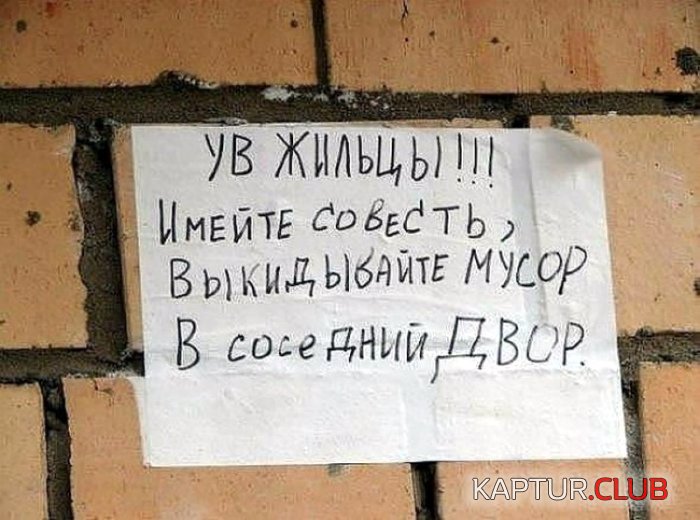 УВ ЖИЛЬЦЫ!!!
ИМЕЙТЕ СОВЕСТЬ,
ВЫКИДЫВАЙТЕ МУСОР
В СОСЕДНИЙ ДВОР.
KAPTUR.CLUB